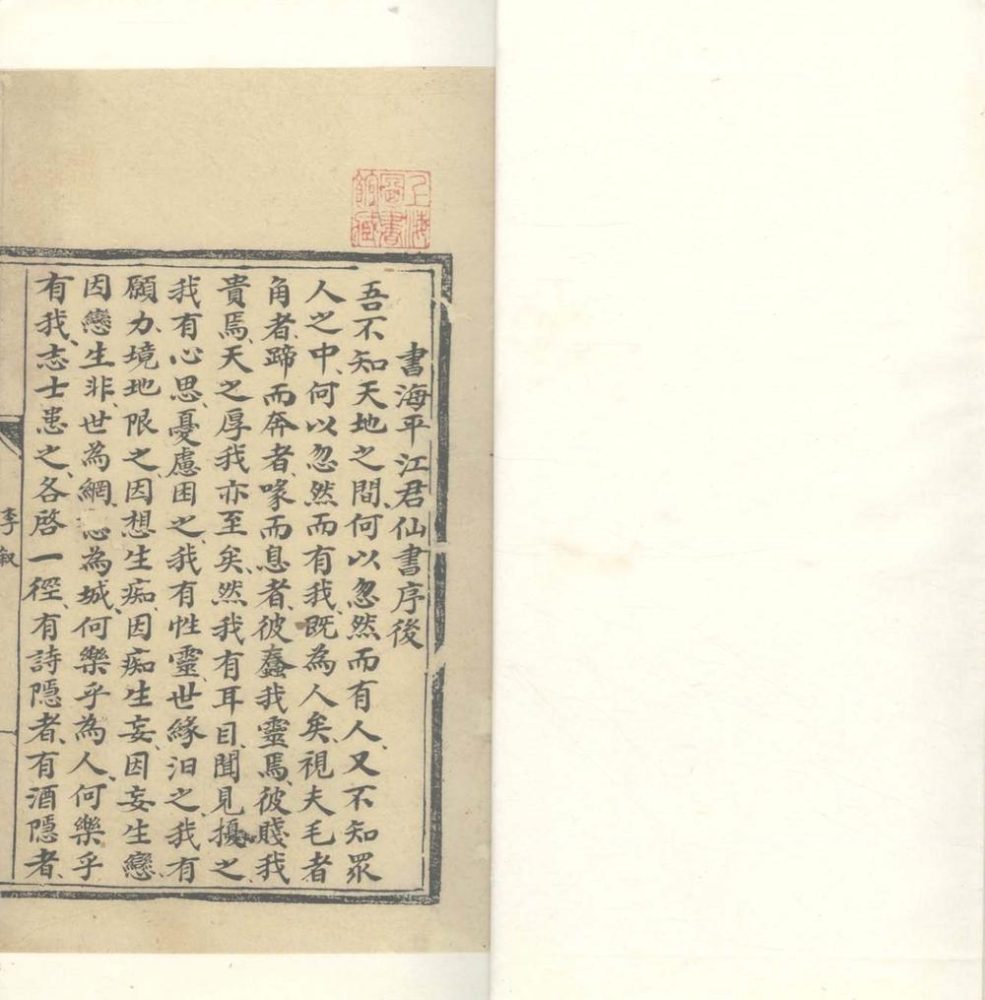 上海
圖書
館藏
書海平江君仙書序後
吾不知天地之間、何以忽然而有人、又不知眾
人之中、何以忽然而有我、既為人矣、視夫毛者
角者、蹄而奔者、喙而息者、彼蠢我靈焉、彼賤我
貴焉、天之厚我亦至矣、然我有耳目、聞見擾之、
我有心思、憂慮困之、我有性靈、世緣汩之、我有
願力、境地限之、因想生痴、因痴生妄、因妄生戀、
因戀生非、世為網、為城、何樂乎為人、何樂乎
有我、志士患之、各啓一徑、有詩隱者、有酒隱者、
李敘